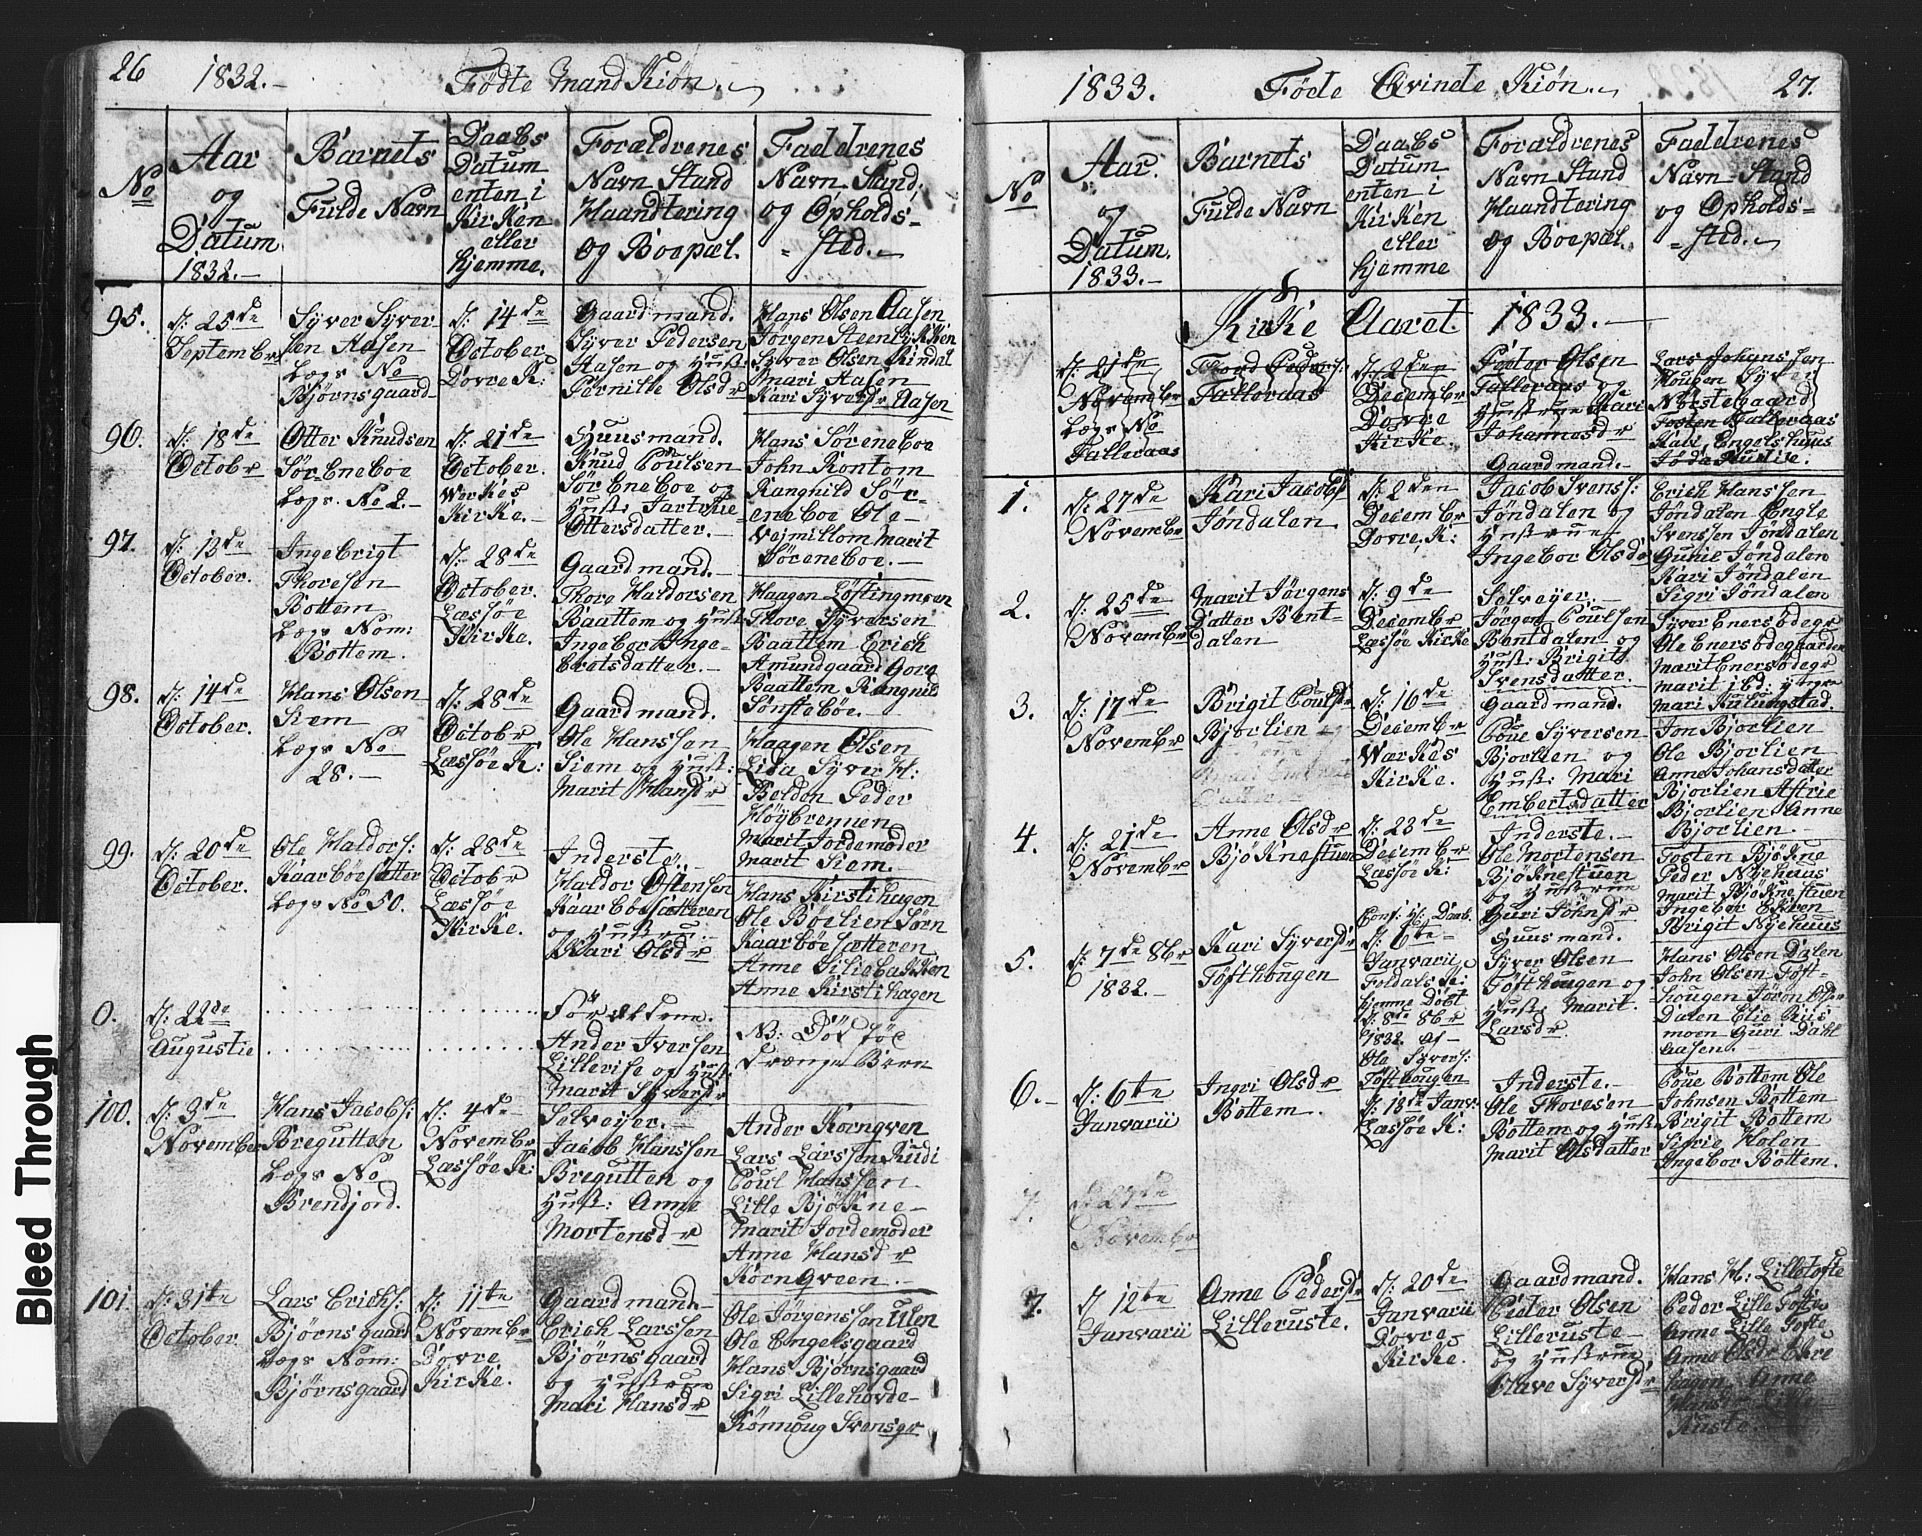 26
1832.-
Födte Mand Kiön.
No
Aar
og
Datum
1832.-
Barnets
Fulde Navn
Daabs
Datum
enten i
Kirken
eller
hjemme.
Forældrenes
Navn Stand
Haandtering
og Boepæl.
Faddrenes
Navn Stand;
og Opholds=
= sted.-
95.
d: 25de
September
Syver Syver-
sen Aasen
Lægs No
Bjørnsgaard
d: 14de
October
Dovre K:
Gaardmand.
Syver Pedersen
Aasen og Hust:
Pernille Olsdr
Hans Olsen Aasen
Jørgen Steenbekken
Syver Olsen Rindal
Mari Aasen
Kari Syversdr Aasen
96.
d: 18de
Octobr
Otter Knudsen
Sör Eneboe
Lægs No 2.-
d: 21de
October.
Werkes
Kirke.-
Huusmand.
Knud Poulsen
Sör Eneboe og
Hust:
Ottersdatter.-
Hans Söreneboe
John Rontom
Rangnild Sör-
eneboe Ole-
Vejmillom Marit
Söreneboe.-
97.
d: 13de
October.
Ingebrigt
Thoresen
Bottem
Lægs Nom:
Bottem.
d: 28de
October.
Læssöe
Kirke.
Gaardmand.-
Thore Haldorsen
Baattem og Hust
Ingebor Inge-
brotsdatter.-
Haagen Löftingmoen
Thore Syversen
Baattem Erich
Amundgaard Gora
Baattem Rangnild
Sönsteböe.-
98.
d: 14de
October.
Hans Olsen
Siem
Lægs No
28.-
d: 28de
Octobr
Læssöe K:
Gaardmand.
Ole Hanssen
Siem og Hust:
Marit Hansdr
Haagen Olsen
Lida Syver H:
Boldon Peder
Höybrennen
Marit Jordemoder
Marit Siem.
99.
d: 20de
October.
Ole Haldors:
Kaarböesætter
Lægs No 50.
d: 28de
Octobr
Læssöe
Kirke.
Inderste.
Haldor Östensen
Kaarböesætteren
og Hustrue
Mari Olsdr
Hans Kirstihagen
Ole Böelien Sörn
Kaarböesætteren
Anne Siliebakken
Anne Kirstihagen
0.
d: 22de
Augustie
Forældrene.
Ander Iversen
Lillerise og Hust
Marit Syversdr
NB: Död föd
Drænge Barn
100.
d: 3de
November
Hans Jacobs:
Bregutten
Lægs No
Brendjord.
d: 4de
Novembr
Læssöe K:
Selvejer.-
Jacob Hanssen
Bregutten og
Hust: Anne
Mortensdr
Ander Korngven
Lars Larssen Rudi
Poul Hanssen
Lille Björkne-
Marit Jordemoder
Anne Hansdr
Korngveen.-
101.
d: 31te
October.
Lars Erichs:
Bjørnsgaard
Lægs Nom:
Bjørnsgaard
d: 11te
Novembr
Dovre
Kirke.
Gaardmand-
Erich Larssen
Bjørnsgaard
og Hustrue
Mari Hansdr
Ole Jörgenssen Ulen
Ole Engelsgaard
Hans Bjørnsgaard
Sigri Lillehovde-
Rönnoug Svensgr.
1833.
Föde Qvinde Kiön.
27.
No
Aar.
og
Datum.
1833.-
Barnets
Fulde Navn
Daabs
Datum
enten i
Kirken
eller
hjemme
Forældrenes
Navn Stand
Haandtering
og Boepæl.
Faddrenes
Navn Stand
og Opholds=
= sted.-
Kirke Aaret 1833.-
d: 21de
Novembr
Lægs No
Talleraas
Thord Peders:
Talleraas
d: 2den
Decembr
Dovre
Kirke.
Peder Olsen
Talleraas og
Hustrue Mari
Johannesdr
Lars Johanssen
Hougen Syver
Norstegaard
Tosten Talleraas
Kari Engelshuus
1.
d: 27de
Novembr
Kari Jacobs
Jöndalen
d: 2den
Decembr
Dovre K:
Gaardmand.-
Jacob Svens:
Jöndalen og
Hustrue
Ingebor Olsdr
Erich Hanssen
Jöndalen Engle
Svenssen Jöndalen
Gunil Jöndalen
Kari Jöndalen
Sigri Jöndalen
2.
d: 25de
Novembr
Marit Jörgens
Datter Bent-
dalen
d: 9de
Decembr
Læssöe Kirke
Selvejer.-
Jörgen Poulsen
Bentdalen og
Hust: Brigit
Svensdatter.
Syver Enersödegr
Ole Enersödegaarden
Marit Enersödegr
Marit ibd: yngre
Mari Kulungstad.
3.
d: 17de
Novembr
Brigit Poulsdr
Bjorlien
d: 16de
Decembr
Warkes
Kirke.
Gaardmand.
Poue Syversen
Bjorlien og
Hust: Mari
Embertsdatter
Jon Bjorlien
Ole Bjorlien
Anne Johansdatter
Bjorlien Astrie
Bjorlien Anne
Bjorlien.-
4.
d: 21de
Novembr
Anne Olsdr
Bjöknestuen
d: 23de
Decembr
Læssöe K:
Inderste.-
Ole Mortensen
Bjöknestuen
og Hustrue
Guri Johnsdr
Tosten Bjökne
Peder Nyehuus
Marit Bjöknestuen
Ingebor Ekren
Brigit Nyehuus
5.
d: 7de 8br
1832.-
Kari Syversdr
Töfthougen
Conf. H: Daab.
d: 6te-
Janvarii
Foldals K:
hjemme Döbt
d: 8de 8br
1832 af-
Ole Syvers:
Töfthougen
Huusmand.
Syver Olsen
Töfthougen og
Hust: Marit
Larsdr.
Hans Olsen Dalen
John Olsen Töft-
hougen Jörön Olsdr
Dalen Elie Riis
moen Guri Dahl
aasen.
6.-
d: 6te
Janvarii
Ingri Olsdr
Bottem.
d: 13de Janv:
Læssöe K:
Inderste.-
Ole Thoresen
Bottem og Hust
Marit Olsdatter
Poue Bottem Ole
Johnsen Bottem
Brigit Bottem
Sigrie Holen
Ingebor Bottem.
7.
d: 27de
Novembr
7.
d: 12te
Janvarii
Anne Pedersdr
Lilleruste.
d: 20de
Janvarii
Dovre
Kirke.
Gaardmand.
Peder Olsen
Lilleruste-
og Hustrue
Olave Syversdr
Hans H: Lilletofte
Peder Lille Tofte
Anne Lille Tofte
Anne Olsdr Ekre
hagen Anne
Hansd Lille
Ruste.
Bleed Through